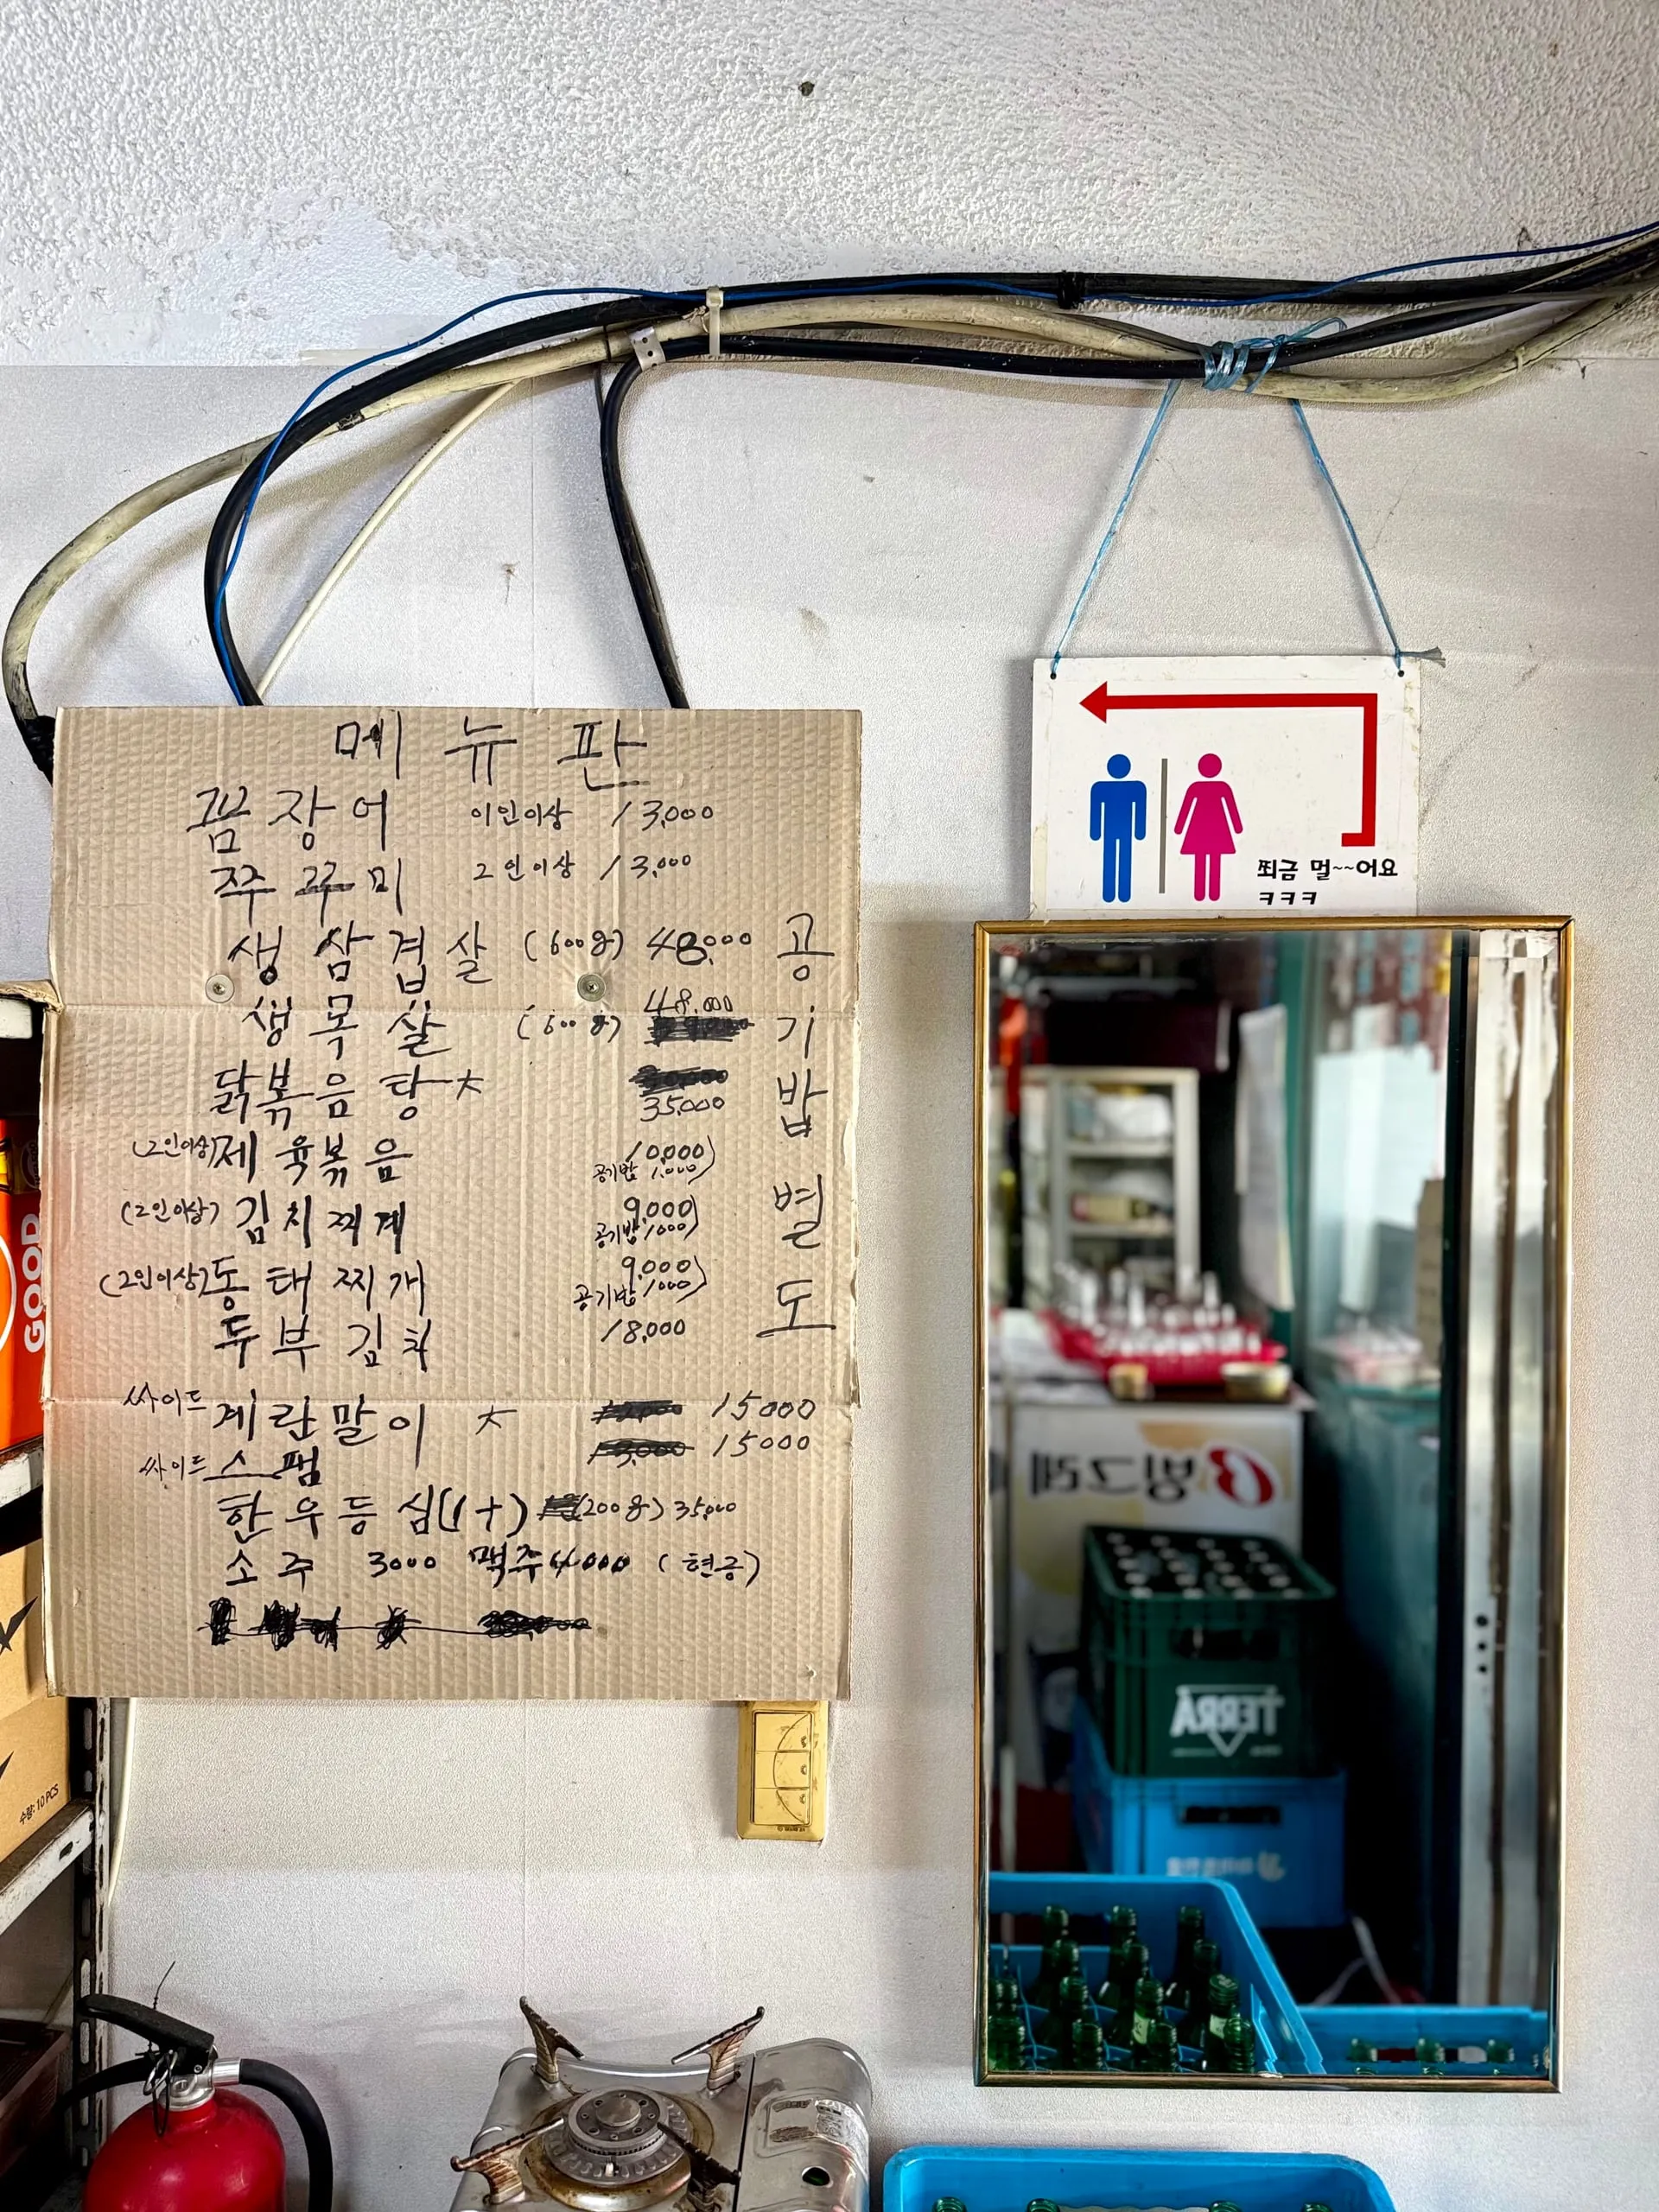 메뉴판
꼼장어 이인이상 13,000
쭈꾸미 2인이상 13,000
생삼겹살 (600g) 48,000
생목살 (600g) 48,000
닭볶음탕 35,000
(2인이상) 제육볶음 10,000
공기밥 1,000)
(2인이상) 김치찌게 9,000
공기밥 1,000)
(2인이상) 동태찌개 9,000
공기밥 1,000)
두부김치 18,000
싸이드 계란말이 15000
싸이드 스팸 13,000 15000
한우등심(1+) (200g) 35,000
소주 3000 맥주 4000 (현금)
공기밥 별도
쬐금 멀~~어요
ㅋㅋㅋ
빙그레
TERRA
GOOD
수량: 10 PCS